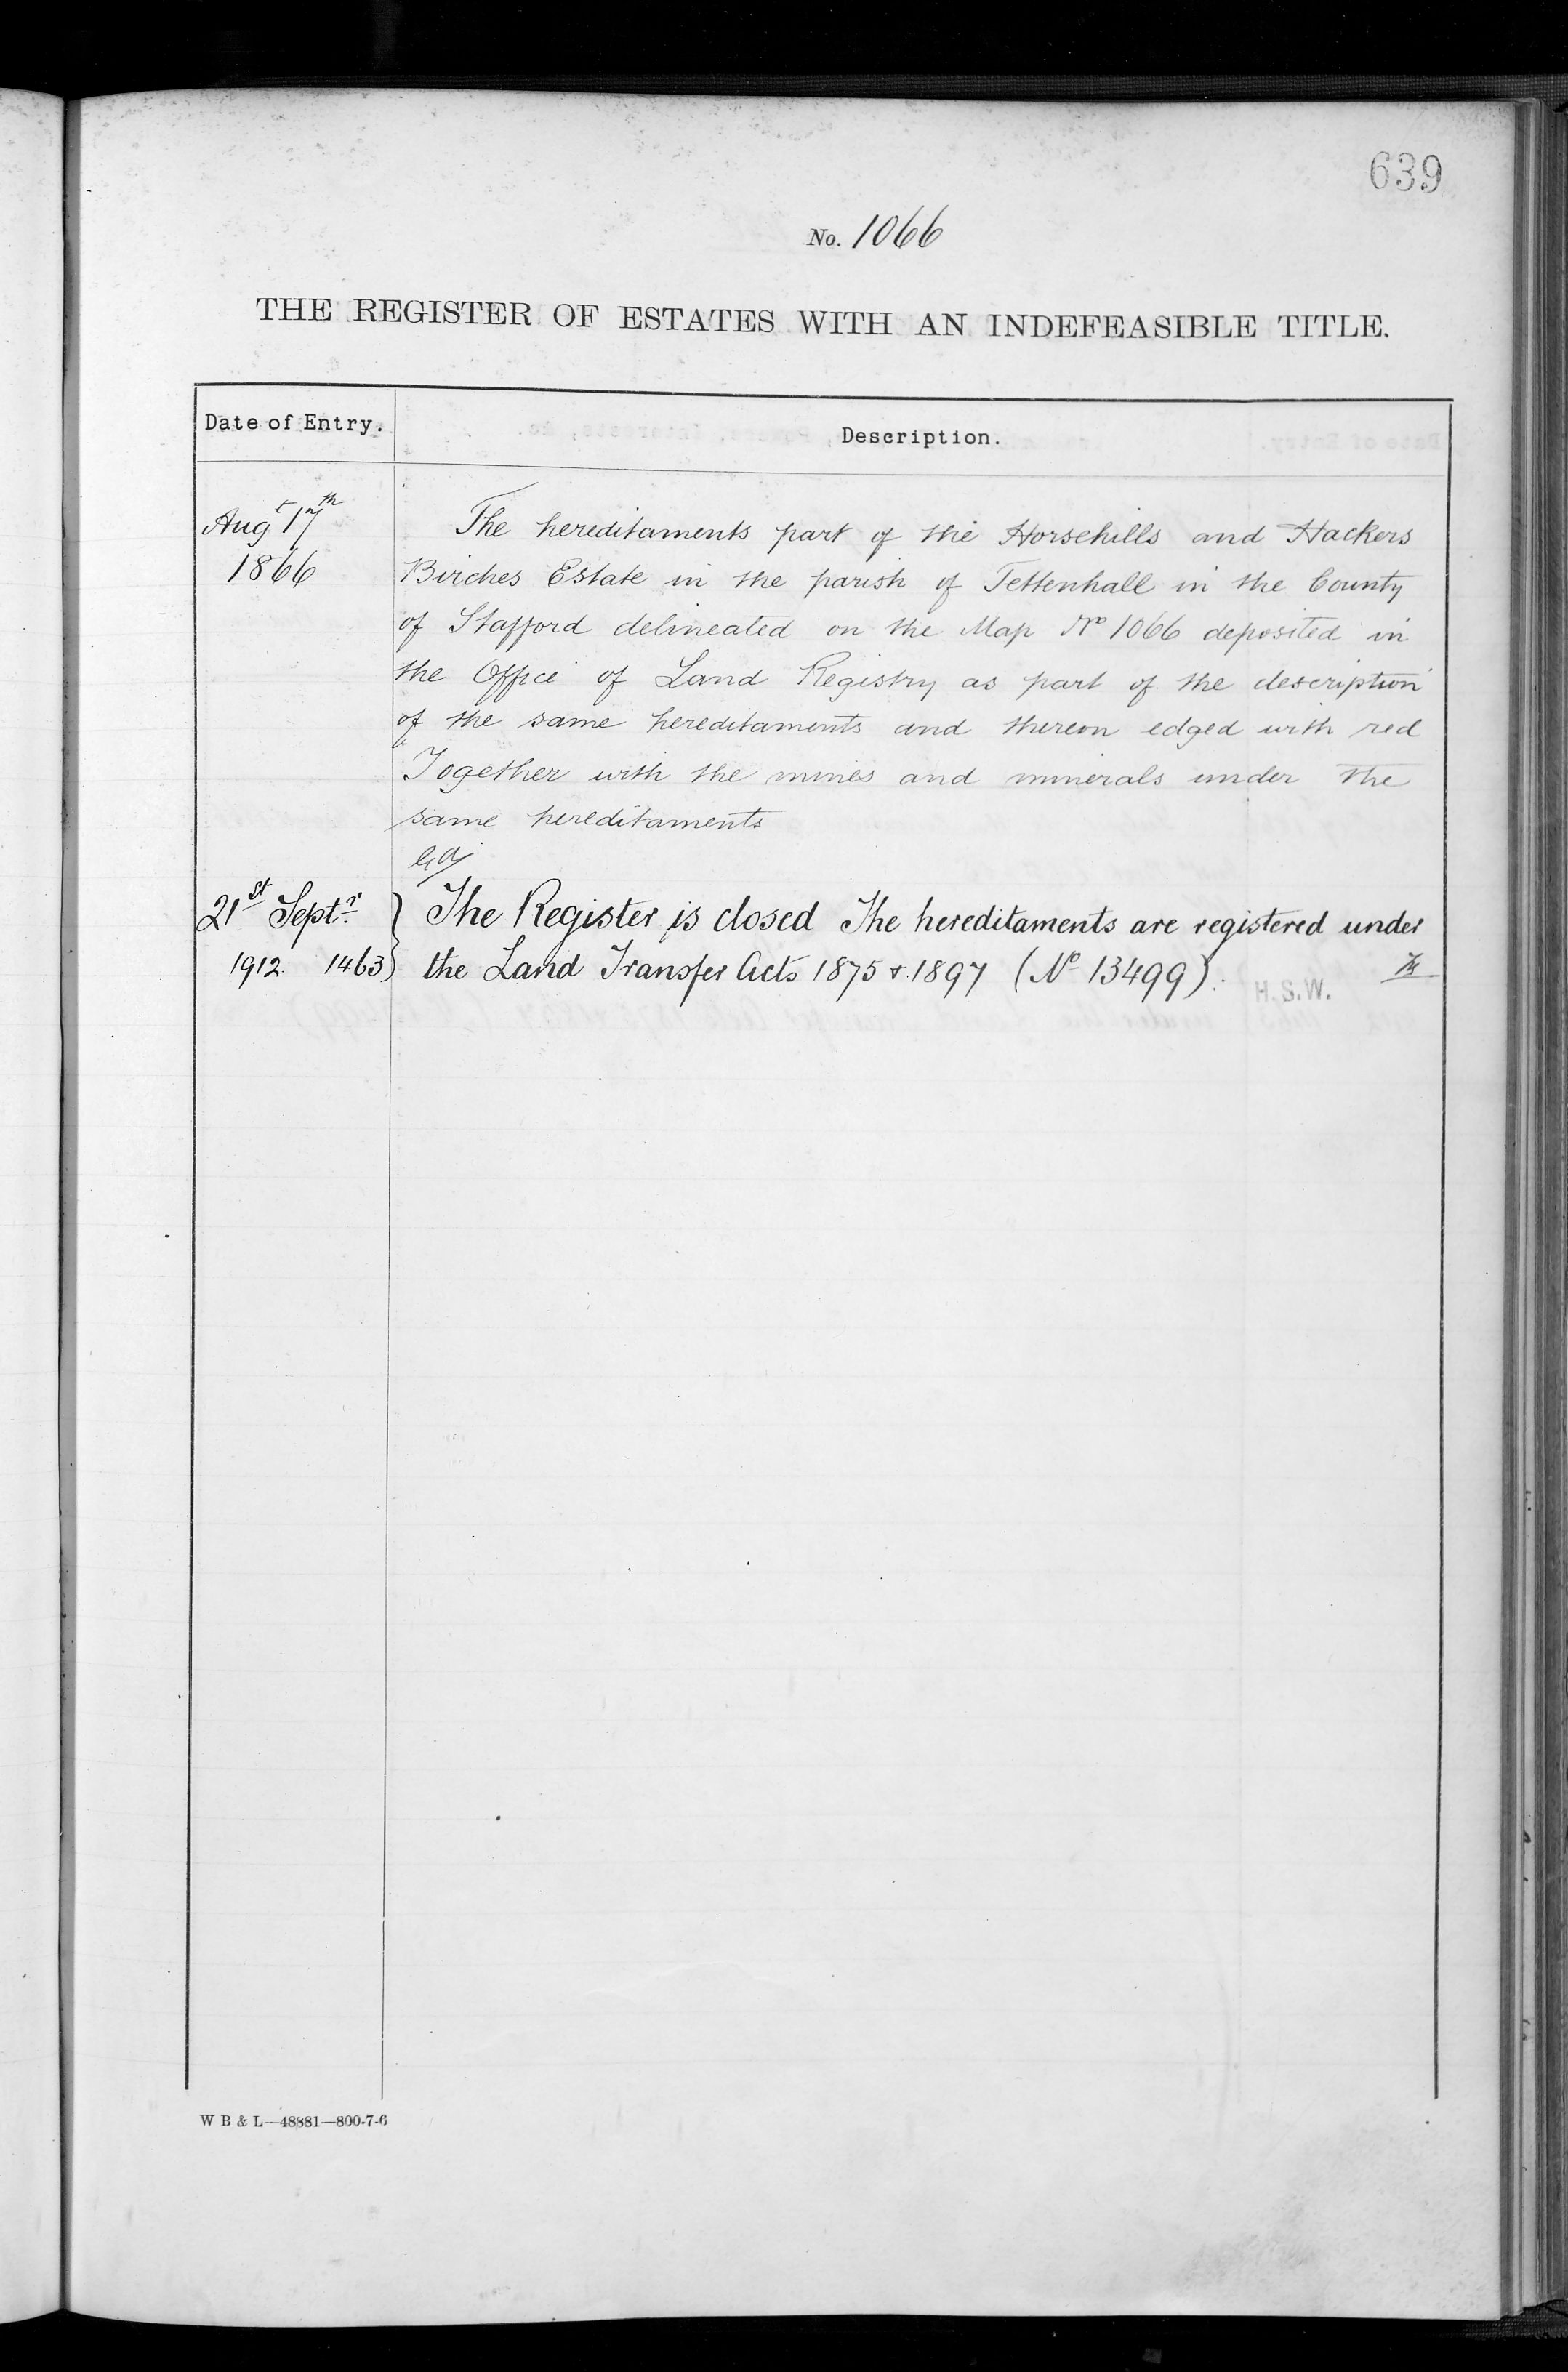 639
No. 1066
THE REGISTER OF ESTATES WITH AN INDEFEASIBLE TITLE.
Date of Entry.
Description.
Augt 17th
1866
The hereditaments part of the Horsehills and Hackers
Birches Estate in the parish of Tettenhall in the County
of Stafford delineated on the Map No 1066 deposited in
the Office of Land Registry as part of the description
of the same hereditaments and thereon edged with red
Together with the mines and minerals under the
same hereditaments
21st Septr
1912. 1463
The Register is closed The hereditaments are registered under
the Land Transfer Acts 1875 & 1897 (No 13499).
H.S.W.
W B & L—48881—800-7-6